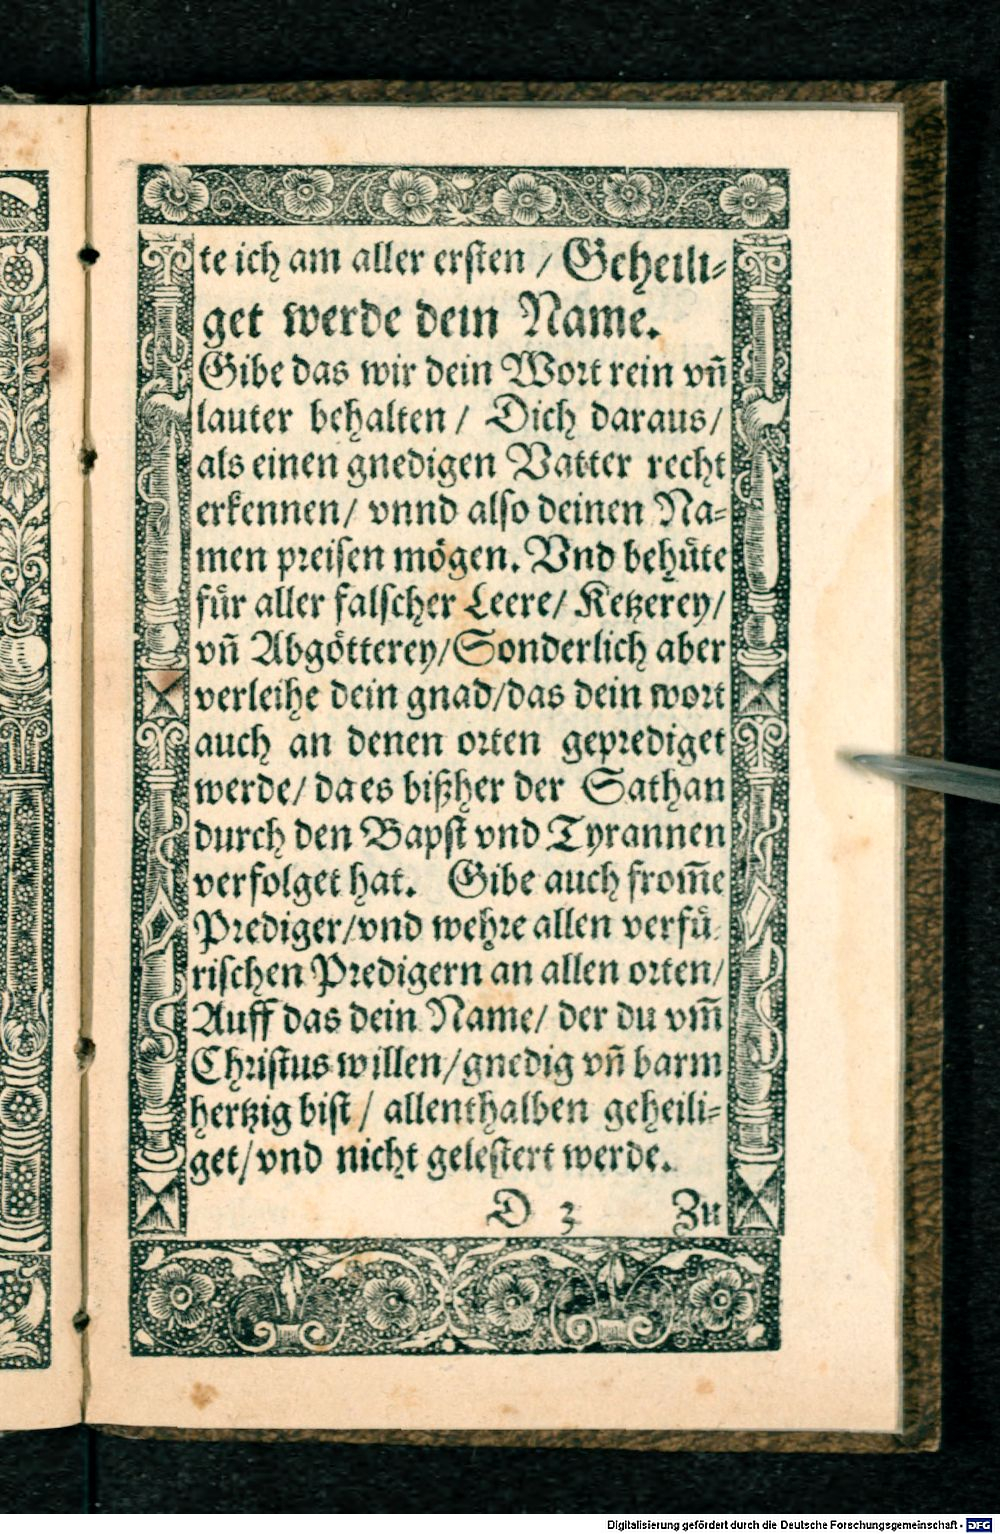 te ich am aller ersten / Geheili⸗
get werde dein Name.
Gibe das wir dein Wort rein vñ
lauter behalten / Dich daraus/
als einen gnedigen Vatter recht
erkennen/ vnnd also deinen Na⸗
men preisen mögen. Vnd behüte
für aller falscher Leere/ Ketzerey/
vñ Abgötterey/Sonderlich aber
verleihe dein gnad/das dein wort
auch an denen orten geprediget
werde/ da es bißher der Sathan
durch den Bapst vnd Tyrannen
verfolget hat. Gibe auch from̅e
Prediger/vnd wehre allen verfü⸗
rischen Predigern an allen orten/
Auff das dein Name/ der du vm̅
Christus willen/gnedig vñ barm
hertzig bist / allenthalben geheili⸗
get/vnd nicht gelestert werde.
D 3 Zu
Digitalisierung gefördert durch die Deutsche Forschungsgemeinschaft - DFG